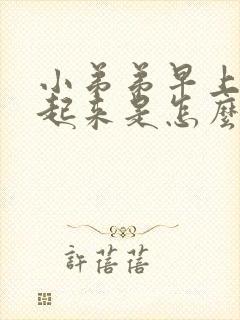 小弟弟早上
起来是怎麼
許蓓蓓